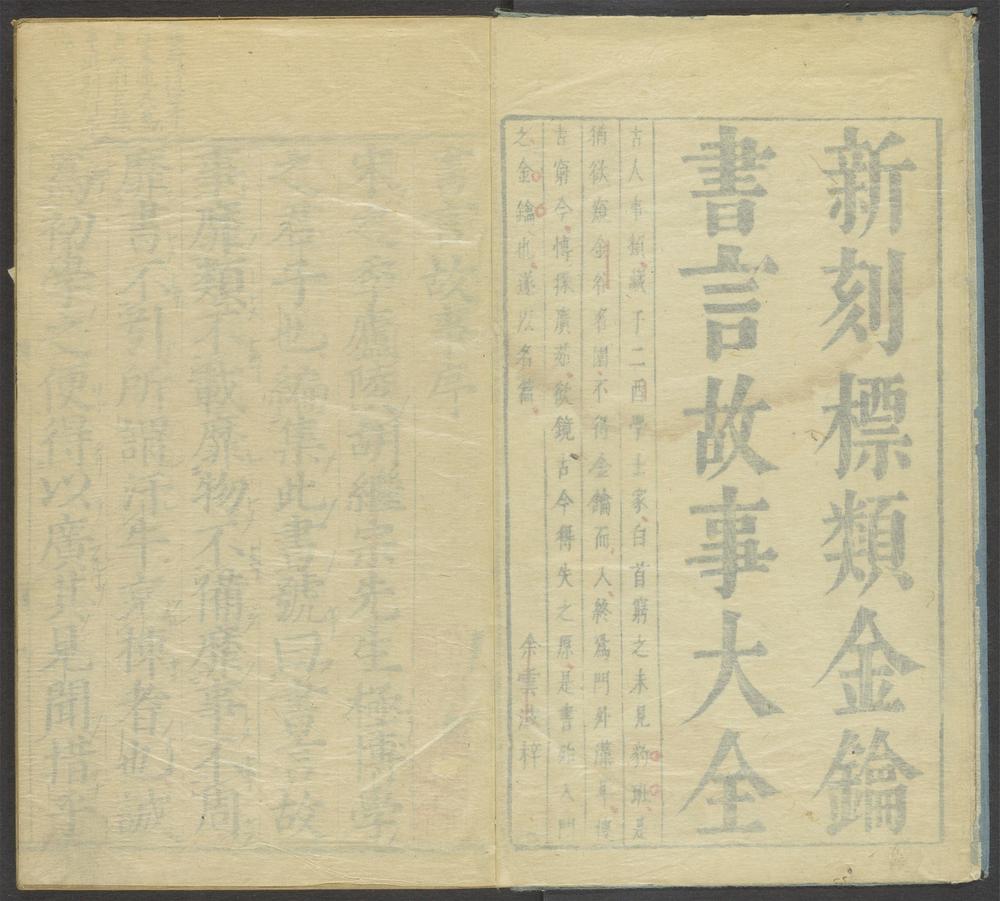 新刻標類金鑰
書言故事大全
古人事類藏于二酉學士家白首窮之未見豹斑是
猶欲窺金谷名園不得金鑰而人終爲門外漢耳
古窮今博採廣蒐欲鏡古今得失之原是書入門
之金鑰也遂以名篇
余雲 梓
書言故事序
宋 廬陵胡繼宗先生極博學
之君子也編集此書號曰書言故
事靡類不載靡物不備靡事不周
靡書不引所謂汗牛充棟者也誠
爲初學之便得以廣其見聞